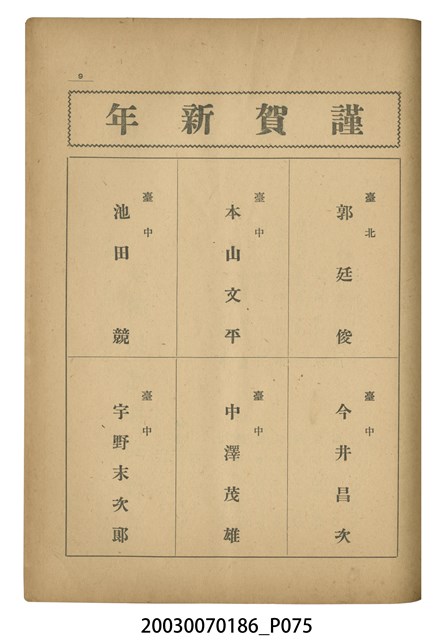 9
謹賀新年
臺北
郭廷俊
臺中
本山文平
臺中
池田競
臺中
今井昌次
臺中
中澤茂雄
臺中
宇野末次郎
20030070186_P075